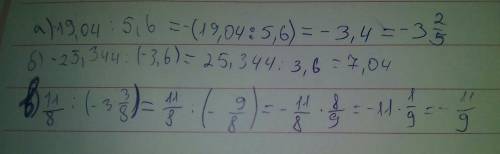 а) 19,04 : 5,6 = -(19,04 : 5,6) = -3,4 = -3 2/5
б) -25,344 : (-3,6) = 25,344 : 3,6 = 7,04
в) 11/8 : (-3 3/8) = 11/8 : (- 9/8) = - 11/8 · 8/9 = -11 · 1/9 = - 11/9